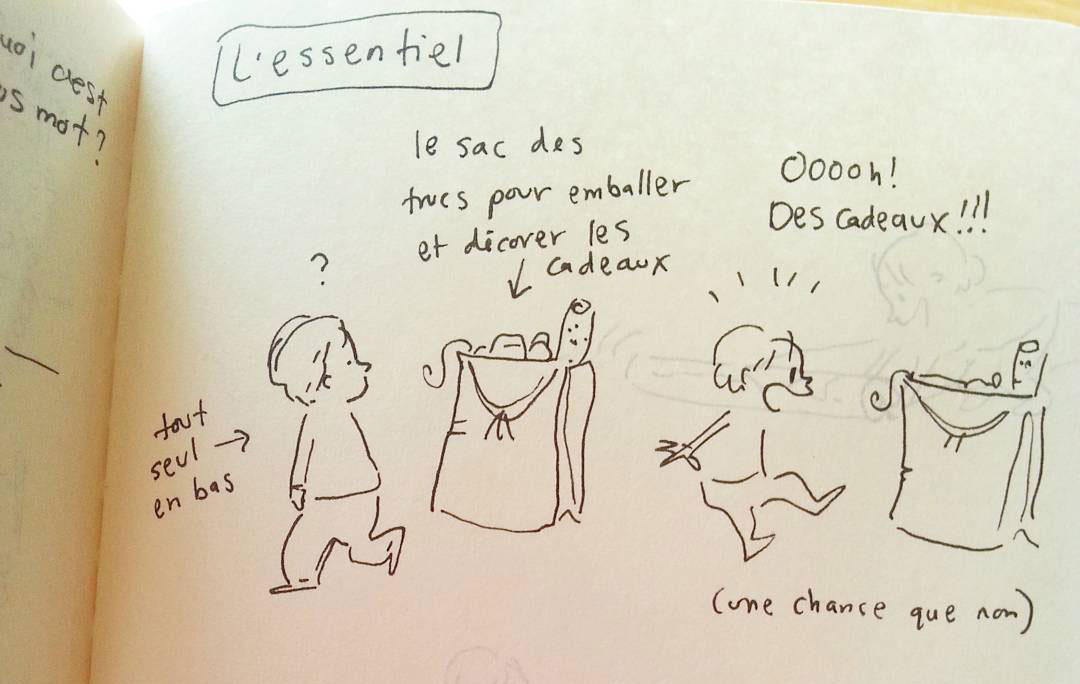 uoi c'est
os mot?
L'essentiel
le sac des
trucs pour emballer
et décorer les
cadeaux
?
tout
seul
en bas
Ooooh!
Des cadeaux!!!
(une chance que non)